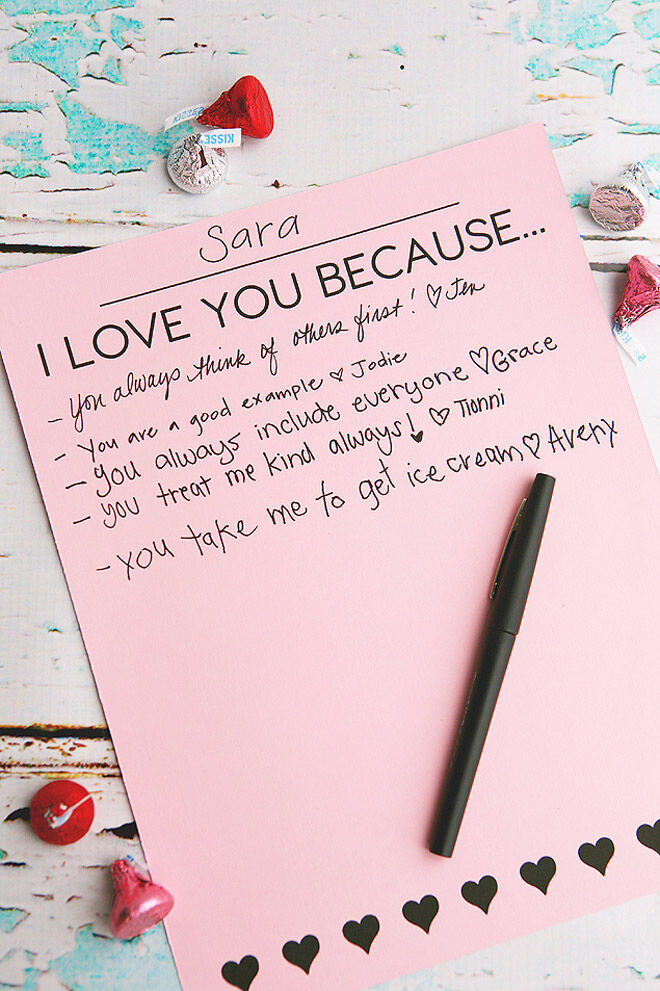 KISSES
KISSES
Sara
I LOVE YOU BECAUSE...
- You always think of others first! ♡ Jen
- You are a good example ♡ Jodie
- you always include everyone ♡ Grace
- you treat me kind always! ♥ ♡ Tionni
- you take me to get ice cream ♡ Avery